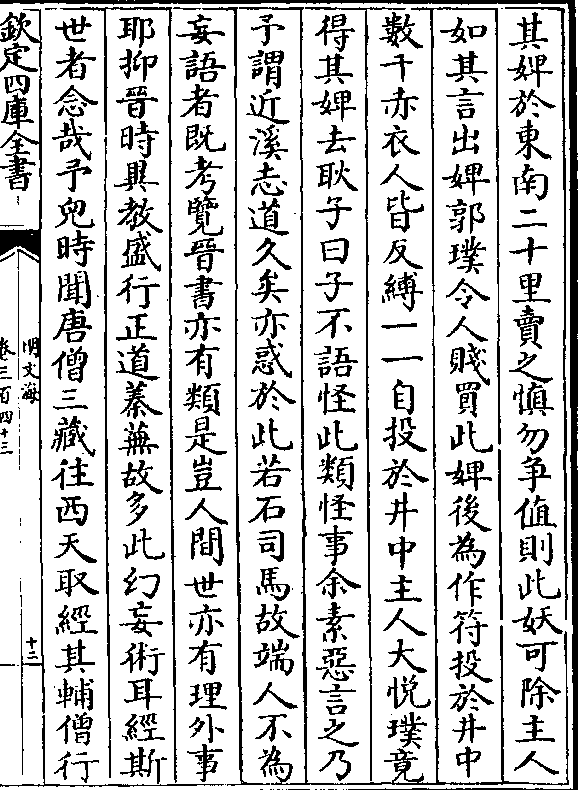 其婢於東南二十里賣之慎勿争值則此妖可除主人
如其言出婢郭璞令人賤買此婢後為作符投於井中
數千赤衣人皆反縛一一自投於井中主人大悅璞竟
得其婢去耿子曰子不語怪此類怪事余素惡言之乃
予謂近溪志道久矣亦惑於此若石司馬故端人不為
妄語者既考覽晉書亦有類是豈人間世亦有理外事
耶抑晉時異教盛行正道蓁蕪故多此幻妄術耳經斯
世者念哉予兒時聞唐僧三藏往西天取經其輔僧行
欽定四庫全書
明文海
卷三百四十三
十三